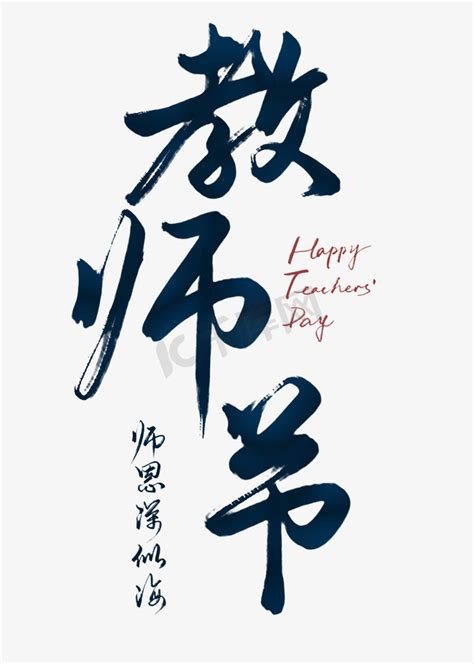 教
师
节
Happy
Teachers'
Day
师恩深似海